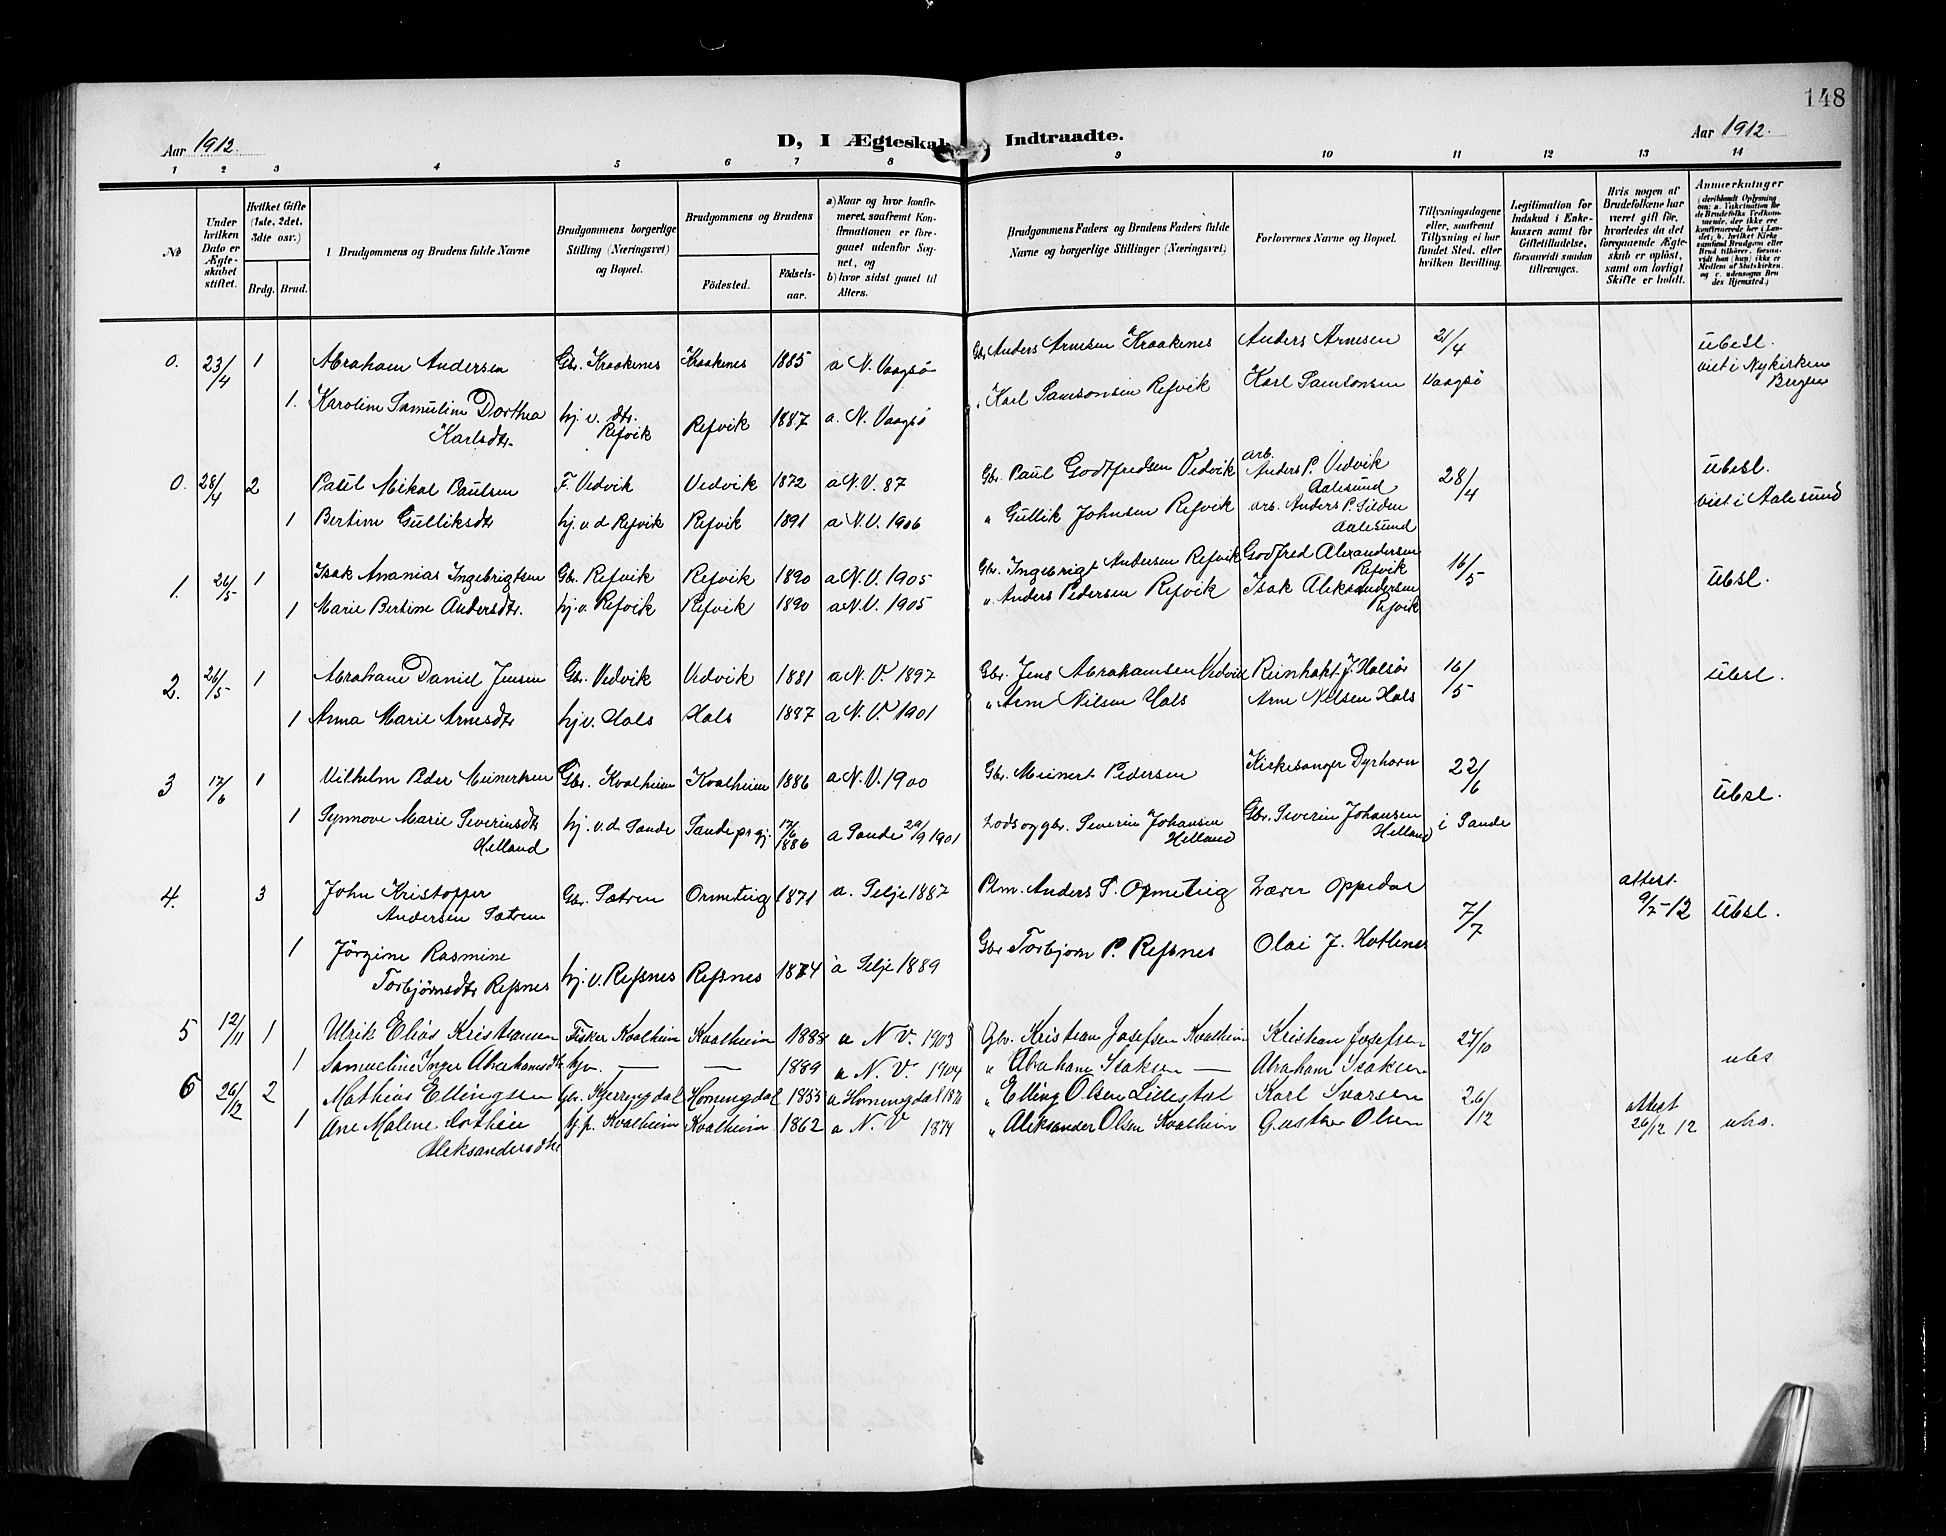 148
Aar 1912.
D, I Ægteskab Indtraadte.
Aar 1912.
1 2 3 4 5 6 7 8 9 10 11 12 13 14
No
Under hvilken Dato er Ægteskabet stiftet.
Hvilket Gifte (1ste, 2det, 3die osv.)
Brdg. Brud.
Brudgommens og Brudens fulde Navne
Brudgommens borgerlige Stilling (Næringsvei) og Bopæl.
Brudgommens og Brudens
Fødested.
Fødselsaar.
a) Naar og hvor konfirmeret, saafremt Konfirmationen er foregaaet udenfor Sognet, og
b) hvor sidst gaaet til Alters.
Brudgommens Faders og Brudens Faders fulde Navne og borgerlige Stillinger (Næringsvei)
Forlovernes Navne og Bopæl.
Tillysningsdagene eller, saafremt Tillysning ei har fundet Sted, efter hvilken Bevilling.
Legitimation for Indskud i Enkekassen samt for Giftetilladelse, forsaavidt saadan tiltrænges.
Hvis nogen af Brudefolkene har været gift før, hvorledes da det foregaaende Ægteskab er opløst, samt om lovligt Skifte er holdt.
Anmærkninger
0. 23/4 1 Abraham Andersen Gbr. Kraakenes Kraakenes 1885 a N. Vaagsø Gbr Anders Arnesen Kraakenes Anders Arnesen 21/4 ubesl.
viet i Nykirken Bergen
1. Karoline Samuline Dorthea Karlsdtr. hj. v. dtr. Refvik Refvik 1887 a. N. Vaagsø " Karl Samsonsen Refvik Karl Samsonsen Vaagsø
0. 28/4 2 Paul Mikal Paulsen F. Vedvik Vedvik 1872 a N. V. 87 Gbr. Paul Godtfredsen Vedvik arb. Anders P. Vedvik Aalesund 28/4 ubesl.
viet i Aalesund
1 Bertine Gulliksdtr hj. v. d Refvik Refvik 1891 a N. V. 1906 " Gullik Johnsen Refvik arb. Anders P. Silden Aalesund
1. 26/5 1 Isak Ananias Ingebrigtsen Gbr. Refvik Refvik 1890 a N. V. 1905 Gbr. Ingebrigt Andersen Refvik Godfred Alexandersen Refvik 16/5 ubsl.
1 Marie Bertine Andersdtr. hj. v. Refvik Refvik 1890 a N. V. 1905 " Anders Pedersen Refvik Isak Aleksandersen Refvik
2. 26/5 1 Abraham Daniel Jensen Gbr. Vedvik Vedvik 1881 a N. V. 1897 Gbr. Jens Abrahamsen Vedvik Reinhakt J. Halsør 16/5 ubsl.
1 Anna Marie Arnesdtr hj. v. Hals Hals 1887 a N. V. 1901 " Arne Nilsen Hals Arne Nilsen Hals
3 17/6 1 Vilhelm Peder Meinertsen Gbr. Kvalheim Kvalheim 1886 a N. V. 1900 Gbr. Meinert Pedersen Kirkesanger Dyrhovn 22/6 ubsl.
1 Synnøve Marie Severinsdtr Helland hj. v. d Sande Sande prgj. 17/6 1886 a Sande 29/9 1901 Lods og gbr. Severin Johansen Helland Gbr. Severin Johansen Helland i Sande
4. 3 John Kristoffer Andersen Sætren Gbr. Sætren Ormetug 1871 a. Selje 1887 Plm. Anders S. Ormetug Lærer Oppedal 7/7 attest 9/7-12 ubsl.
1 Jørgine Rasmine Torbjørnsdtr Refsnes hj. v. Refsnes Refsnes 1874 a Selje 1889 Gbr Torbjørn P. Refsnes Olai J. Hotlenes
5 12/11 1 Ulrik Elias Kristiansen Fisker Kvalheim Kvalheim 1888 a N. V. 1903 Gbr. Kristian Josefsen Kvalheim Kristian Josefsen 27/10 ubs
1 Samueline Inger Abrahamsdtr hjv. — — 1889 a N. V. 1904 " Abraham Isaksen — Abraham Isaksen
6 26/12 2 Mathias Ellingsen Gbr. Kjerringdal Horningdal 1853 a Horningdal 1870 " Elling Olsen Lillestøl Karl Ivarsen 26/12 attest 26/12 12 ubs.
1 Ane Malene Dorthea Aleksandersdtr hj. p. Kvalheim Kvalheim 1862 a N. V 1874 " Aleksander Olsen Kvalheim Gusthav Olsen